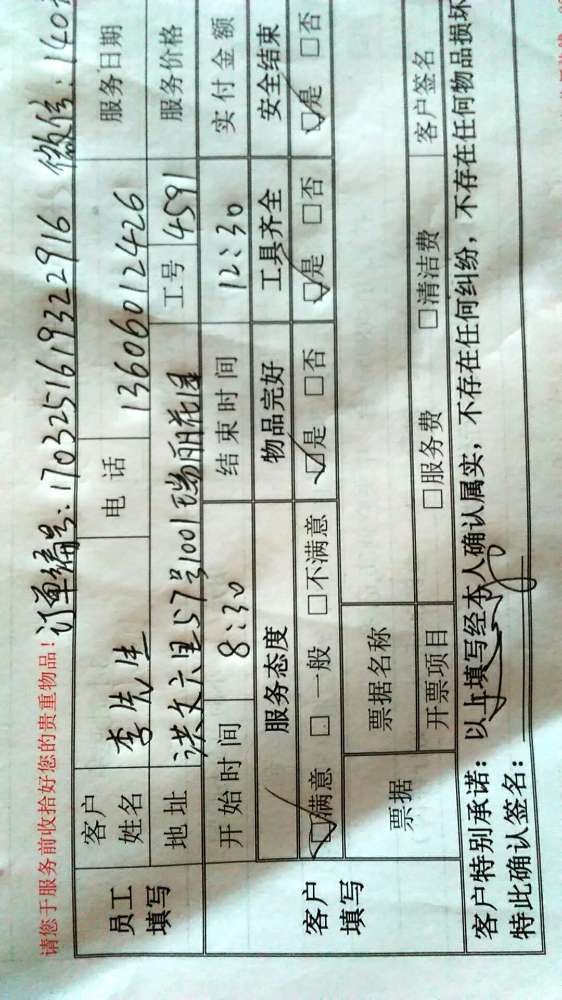 请您于服务前收拾好您的贵重物品！
订单编号：1703251619322916 微信：140
员工填写 客户姓名 李先生 电话 13606012426 服务日期
地址 洪文六里57号1001瑞丽花园 工号 4591 服务价格
客户填写 开始时间 8:30 结束时间 12:30 实付金额
服务态度 物品完好 工具齐全 安全结束
☑满意 □一般 □不满意 ☑是 □否 ☑是 □否 ☑是 □否
票据 票据名称
开票项目 □服务费 □清洁费 客户签名
客户特别承诺：以上填写经本人确认属实，不存在任何纠纷，不存在任何物品损坏
特此确认签名：